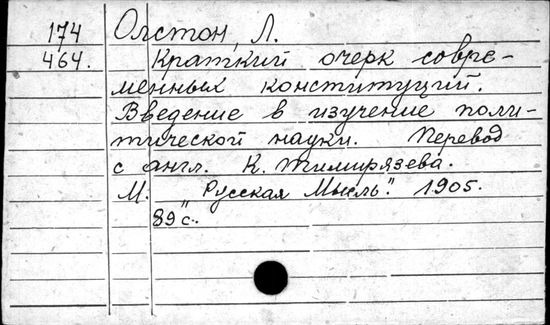 174 Олстон, Л.
464. Краткий очерк совре-
менных конституций.
Введение в изучение поли-
тической науки. Перевод
с англ. К. Тимирязева.
М. „Русская Мысль". 1905.
89 с.